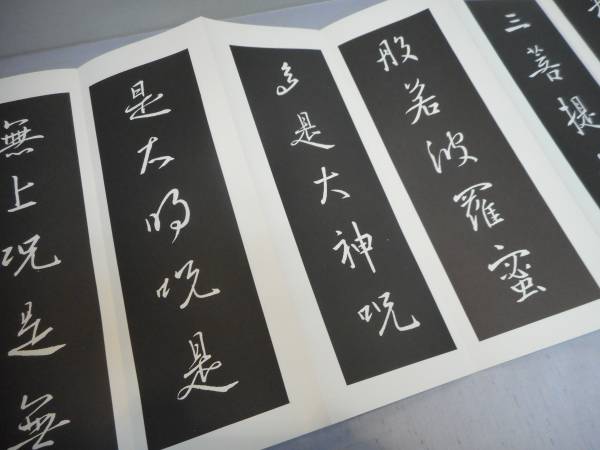 三菩提
般若波羅蜜
多是大神呪
是大明呪是
無上呪是無